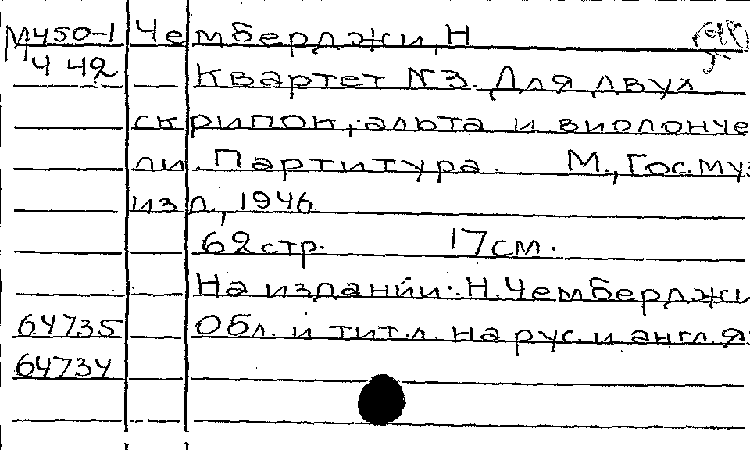 М450-1 Чемберджи, Н
Ч 42 Квартет №3. Для двух
скрипок, альта и виолонче
ли. Партитура. М., Гос. муз
изд, 1946
62 стр. 17 см.
На издании: Н. Чемберджи
64735 Обл. и тит. л. на рус. и англ. я
64734